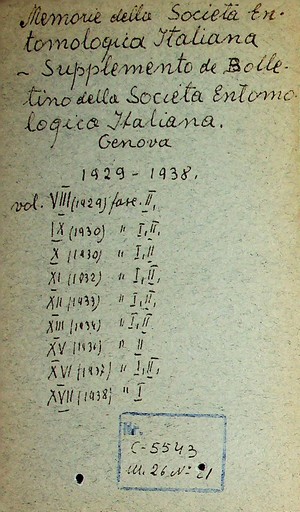 Memorie della Società En-
tomologica Italiana
- Supplemento de Bolle-
tino della Societa Entomo-
logica Italiana.
Genova
1929-1938.
vol. VIII (1929) fasc. II,
IX (1930) " I,II,
X (1930) " I,II
XI (1932) " I,II,
XII (1933) " I,II,
XIII (1934) " I,II
XV (1936) " II
XVI (1937) " I,II,
XVII (1938) " I
Nr.
C-5543
M. 26 No 21